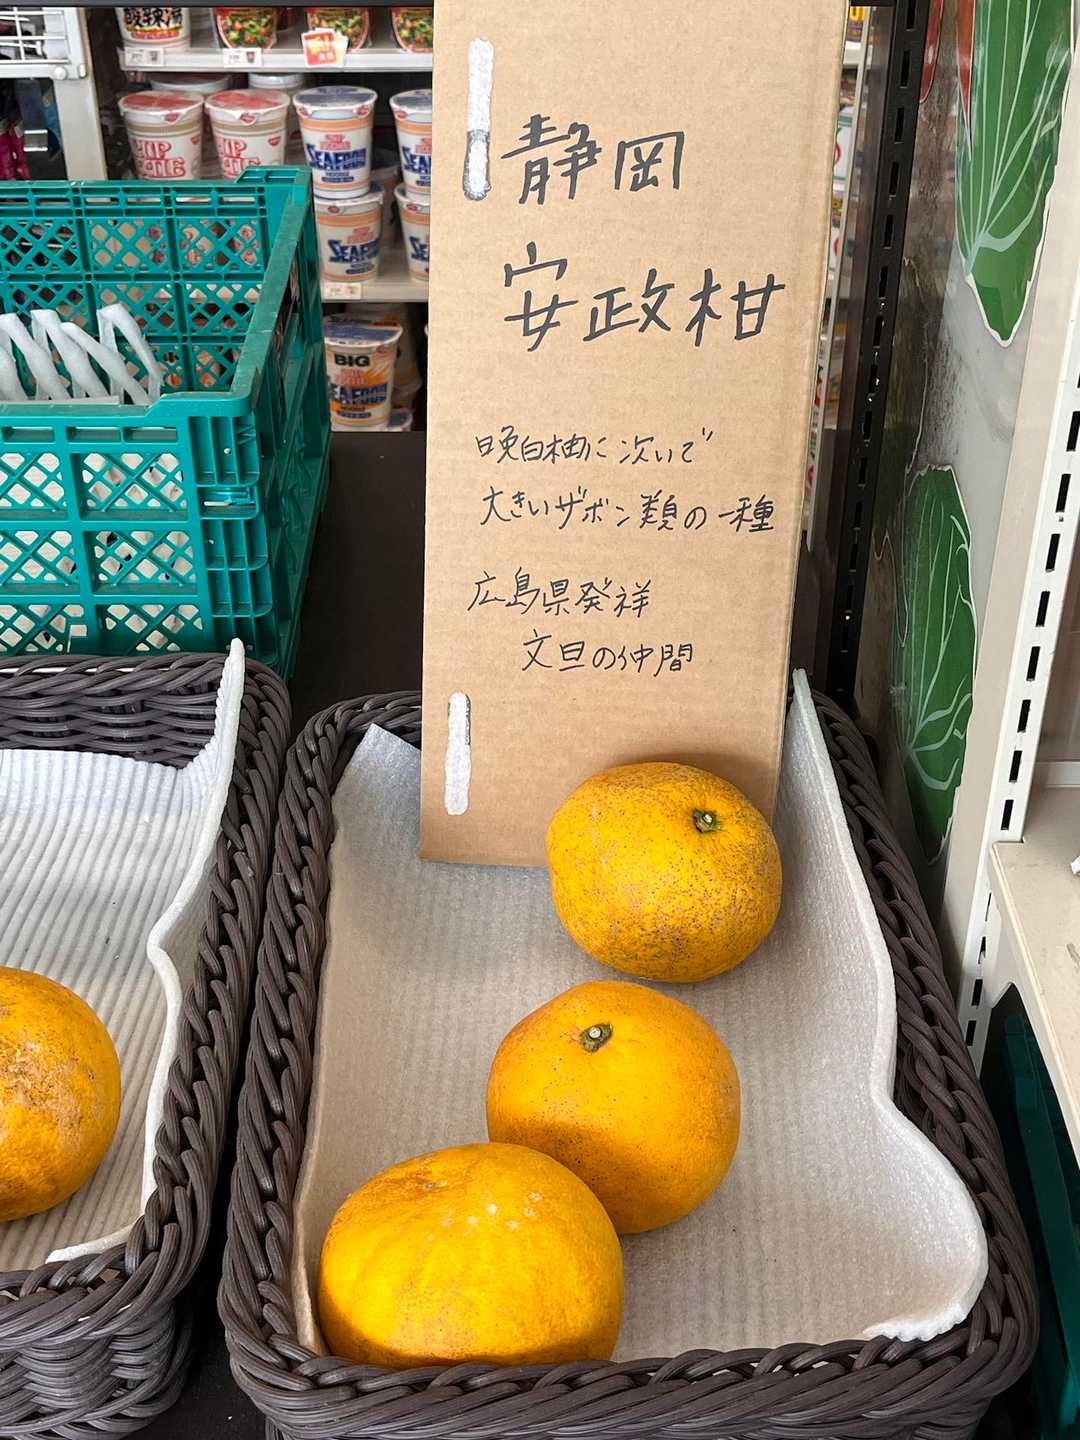 酸辣湯
SEAFOOD
NOODLE
SEAFOOD
BIG
SEAFOOD
NOODLE
静岡
安政柑
晩白柚に次いで
大きいザボン類の一種
広島県発祥
文旦の仲間